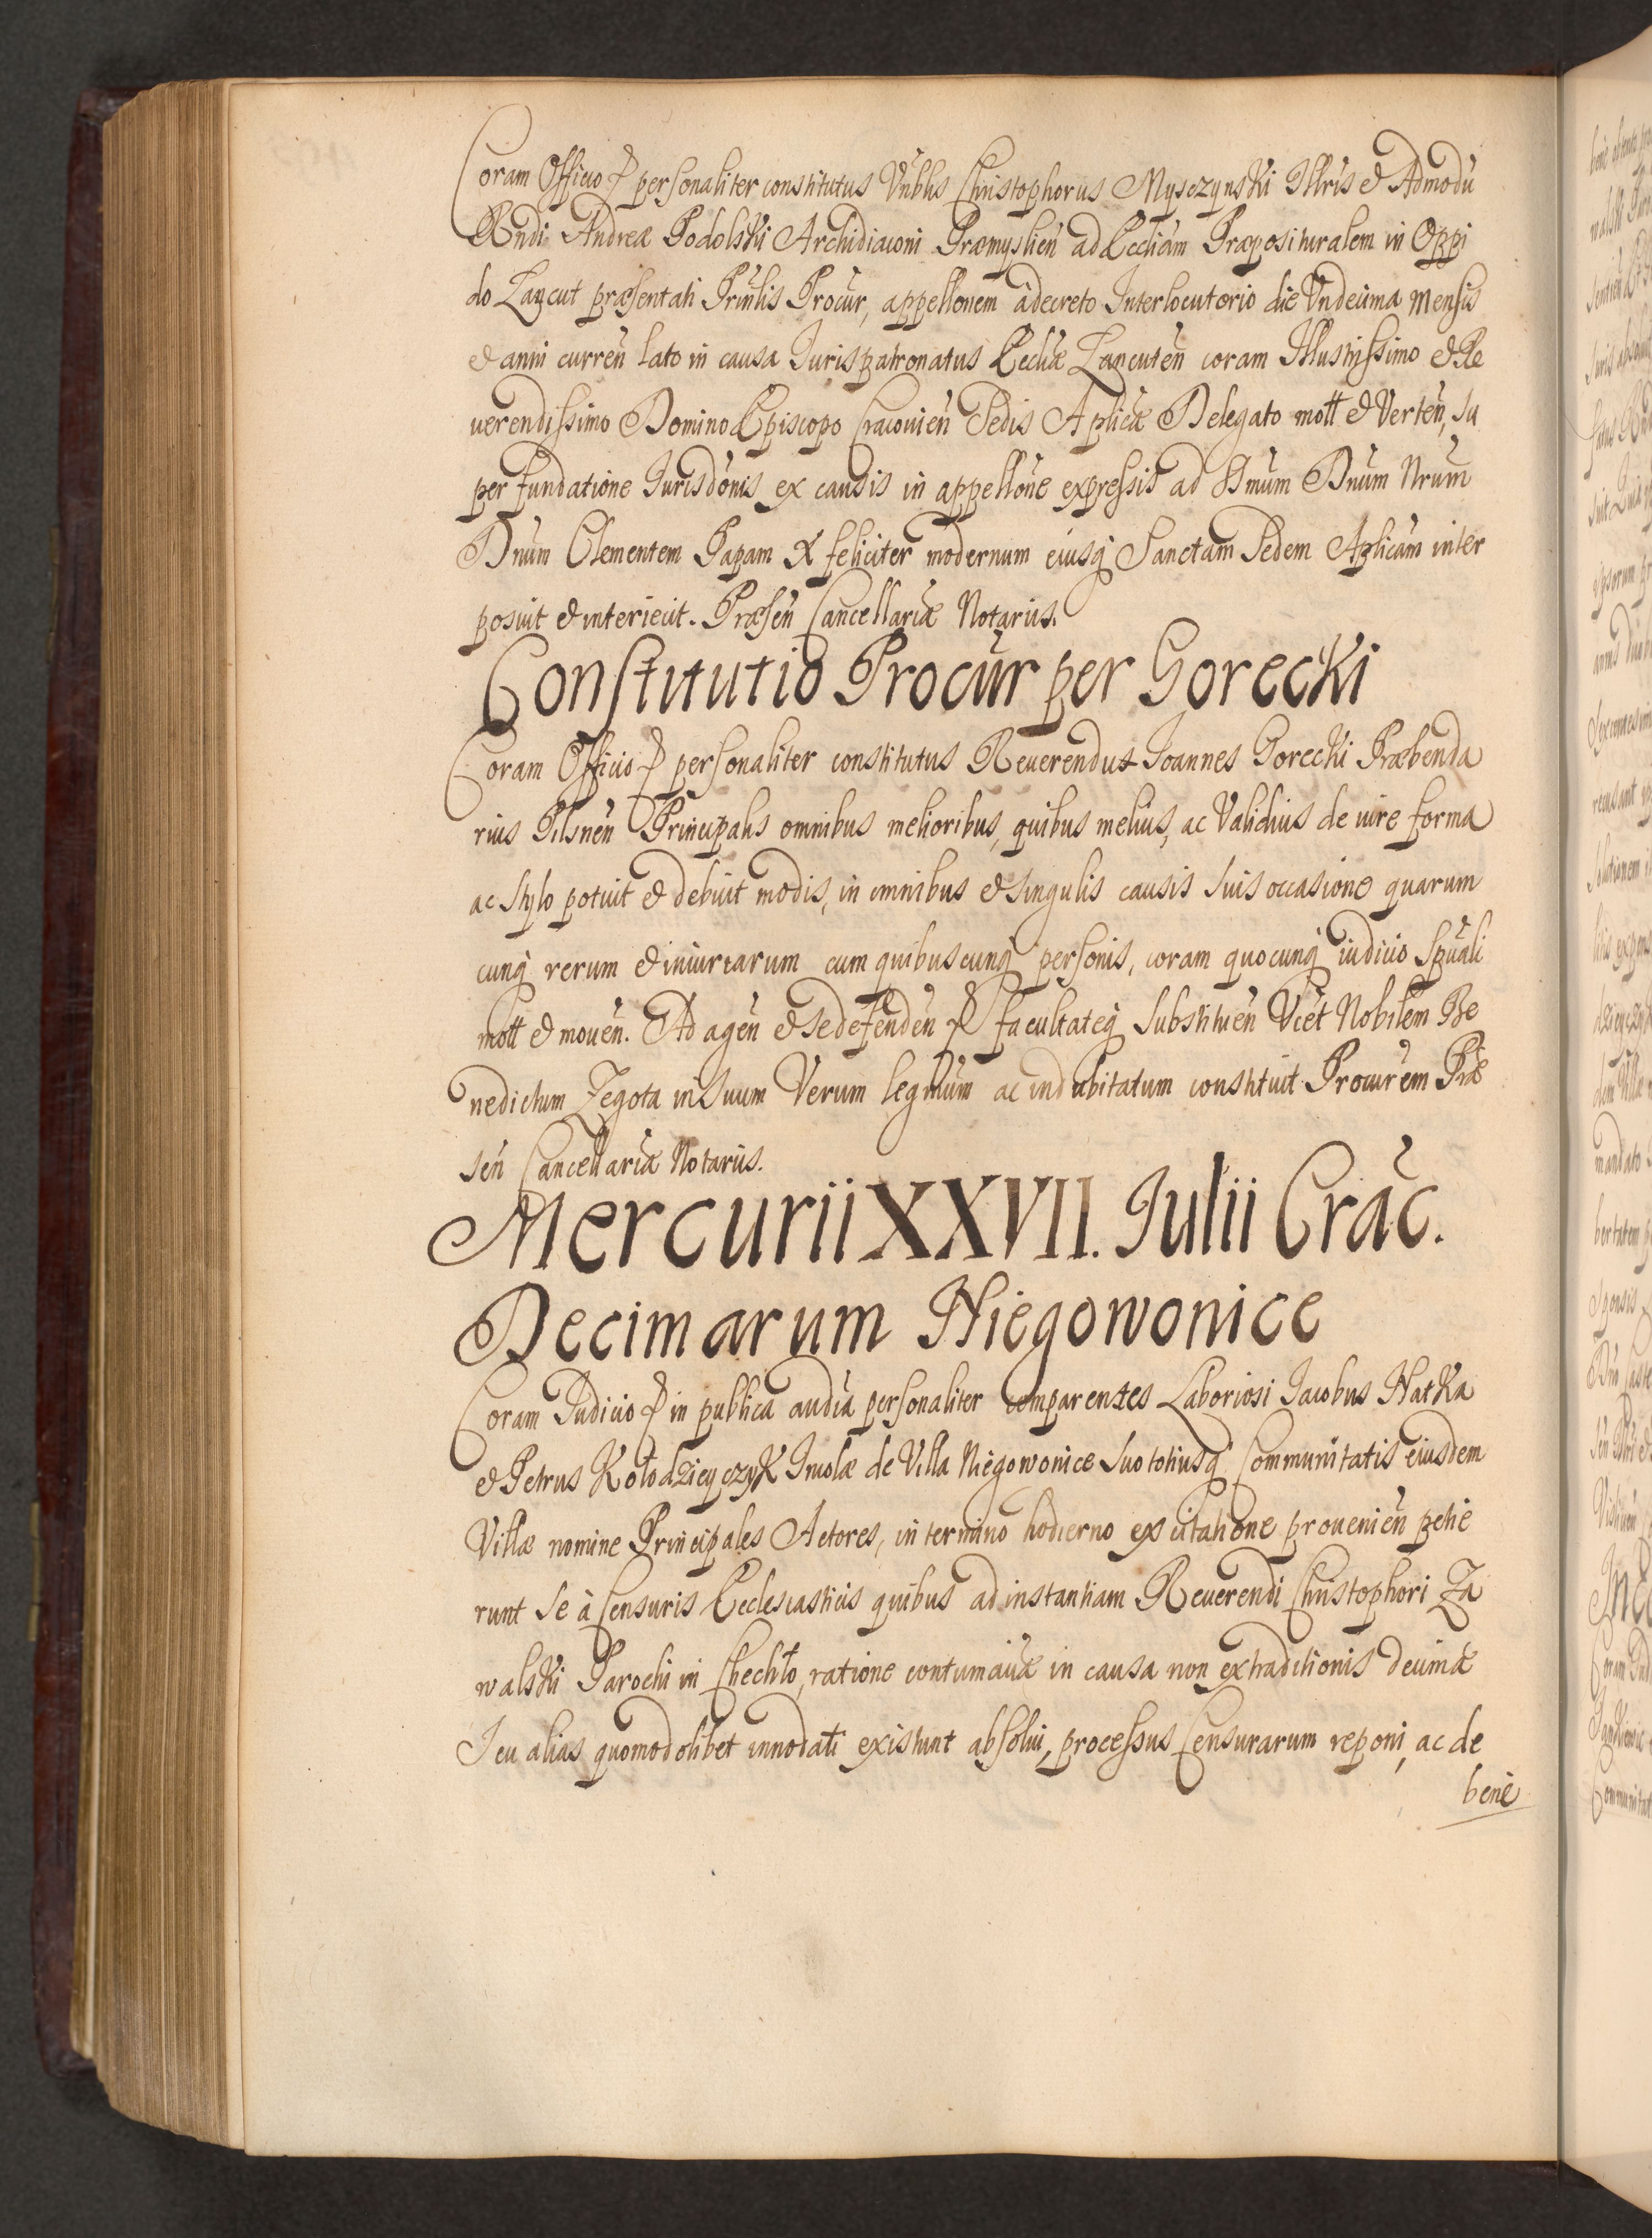 Coram Officio personaliter constitutus Vnblis Christophorus Mysczynski Illris & Admodū
Rndi Andreæ Podolski Archidiaconi Præmyslien̄ ad Eccliam Præposituralem in Oppi
do Lancut præsentati Prinlis Procur, appellonem à decreto Interlocutorio die Vndecima Mensis
& anni curren̄ lato in causa Iurispatronatus Eccliæ Lancuten̄ coram Illustrissimo & Re
uerendissimo Domino Episcopo Cracouien̄ Sedis Aplicæ Delegato mott & Verten̄, su
per fundatione Iurisdōnis ex causis in appellōne expressis ad SSmum Dnum Nrum
Dnum Clementem Papam X feliciter modernum eiusq; Sanctam Sedem Aplicam inter
posuit & interiecit. Præsen̄ Cancellariæ Notariis.
Constitutio Procur per Gorecki
Coram Officio personaliter constitutus Reuerendus Ioannes Gorecki Præbenda
rius Pilsnen̄ Principalis omnibus melioribus, quibus melius, ac Validius de iure forma
ac stylo potuit & debuit modis, in omnibus & singulis causis suis occasione quarum
cunq; rerum & iniuriarum cum quibuscunq; personis, coram quocunq; iudicio Spuali
mott & mouen̄. Ad agen̄ & se defenden̄ facultateq; substituen̄ Vcet Nobilem Be
nedictum Zegota in suum Verum legmum ac indubitatum constituit Procurem Præ
sen̄ Cancellariæ Notariis.
Mercurii XXVII. Iulii Crac.
Decimarum Niegowonice
Coram Iudicio in publica audia personaliter comparentes Laboriosi Iacobus Natka
& Petrus Kołodzieyczyk Incolæ de Villa Niegowonice suo totiusq; Communitatis eiusdem
Villæ nomine Principales Actores, in termino hodierno ex citatione prouenien̄ petie
runt se à Censuris Ecclesiasticis quibus ad instantiam Reuerendi Christophori Za
walski Parochi in Chechło, ratione contumaciæ in causa non extraditionis decimæ
seu alias quomodolibet innodati existunt absolui, processus Censurarum reponi, ac de
bene